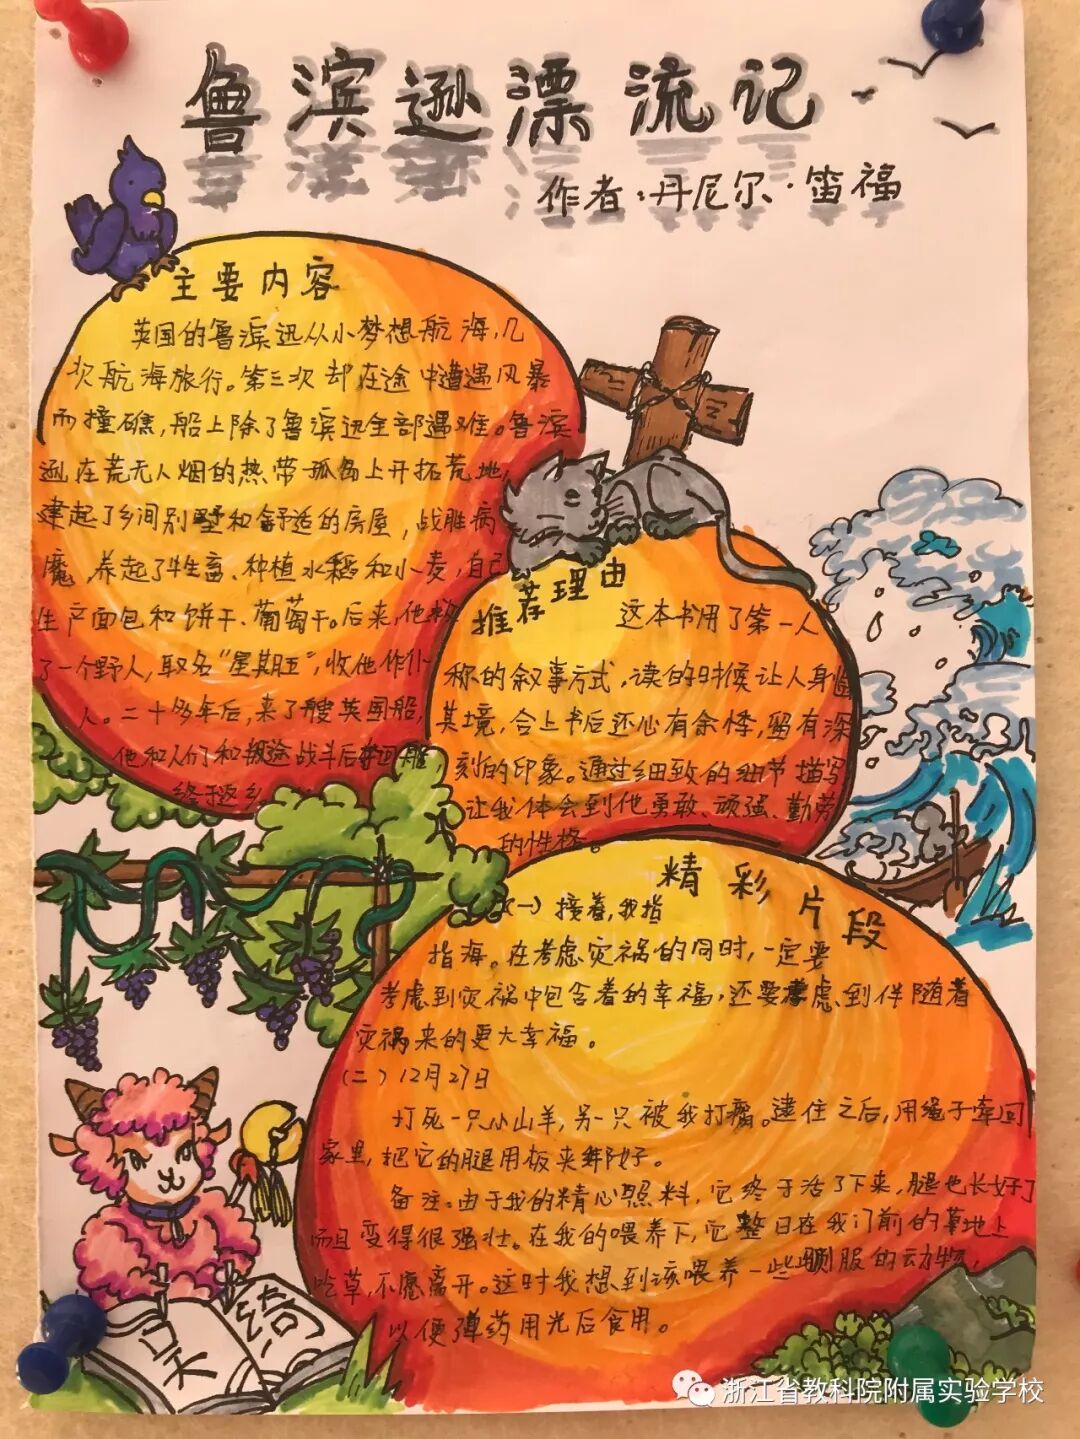 鲁滨逊漂流记
作者:丹尼尔·笛福
主要内容
英国的鲁滨迅从小梦想航海,几
次航海旅行。第三次却在途中遭遇风暴
而撞礁,船上除了鲁滨迅全部遇难。鲁滨
逊在荒无人烟的热带孤岛上开拓荒地,
建起了乡间别墅和舒适的房屋,战胜病
魔,养起了牲畜、种植水稻和小麦,自己
生产面包和饼干、葡萄干。后来,他救
了一个野人,取名“星期五”,收他作仆
人。二十多年后,来了艘英国船,
他和人们和叛徒战斗后夺回船,
终于返乡
推荐理由
这本书用了第一人
称的叙事方式,读的时候让人身临
其境,合上书后还心有余悸,留有深
刻的印象。通过细致的细节描写
让我体会到他勇敢、顽强、勤劳
的性格。
精彩片段
(一)接着,我指
指海。在考虑灾祸的同时,一定要
考虑到灾祸中包含着的幸福,还要考虑到伴随着
灾祸来的更大幸福。
(二)12月27日
打死一只小山羊,另一只被我打瘸。逮住之后,用绳子牵回
家里,把它的腿用板夹绑好。
备注:由于我的精心照料,它终于活了下来,腿也长好了
而且变得很强壮。在我的喂养下,它整日在我门前的草地上
吃草,不愿离开。这时我想到该喂养一些驯服的动物,
以便弹药用光后食用。
浙江省教科院附属实验学校